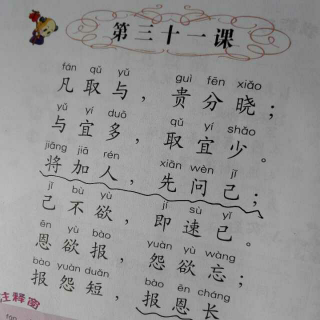 第三十一课
fán qǔ yǔ guì fēn xiǎo
凡取与，贵分晓；
yǔ yí duō qǔ yí shǎo
与宜多，取宜少。
jiāng jiā rén xiān wèn jǐ
将加人，先问己；
jǐ bù yù jí sù yǐ
己不欲，即速已。
ēn yù bào yuàn yù wàng
恩欲报，怨欲忘；
bào yuàn duǎn bào ēn cháng
报怨短，报恩长
注释窗